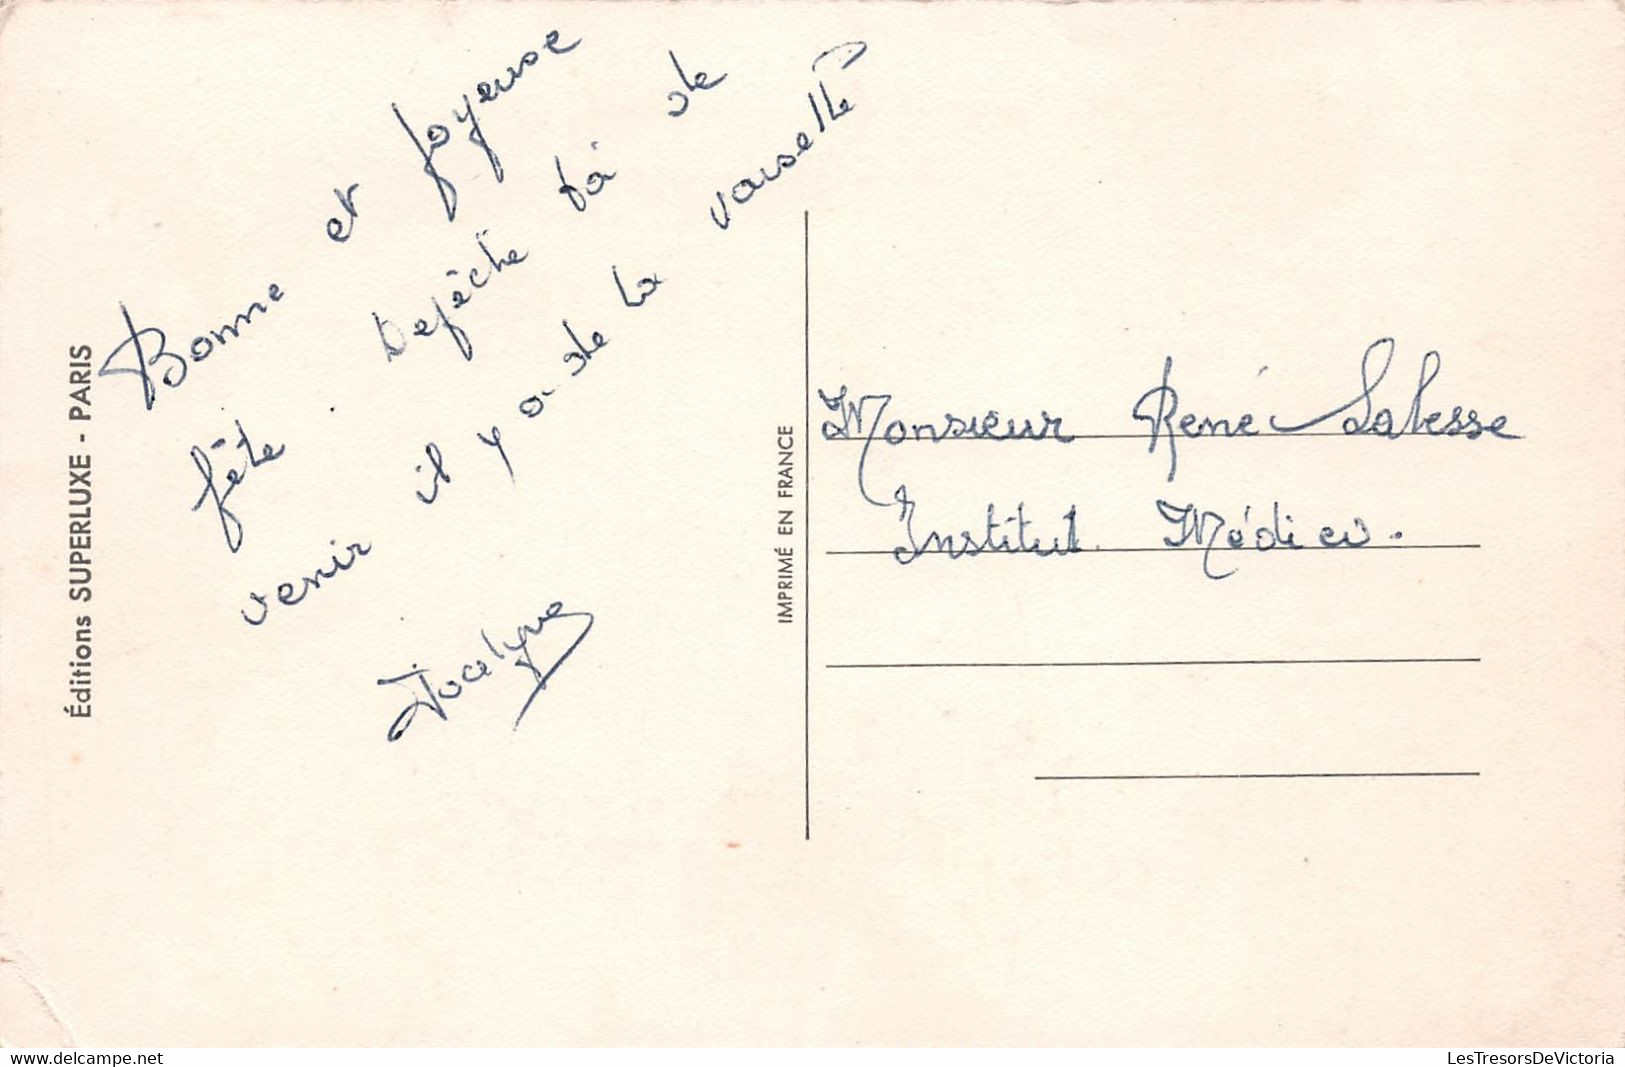 Bonne et Joyeuse
fête Depêche toi de
venir il y a de la vaiselle
Jocelyne
Éditions SUPERLUXE - PARIS
IMPRIMÉ EN FRANCE
Monsieur René Labesse
Institut Médico.
delcampe.net
LesTresorsDeVictoria